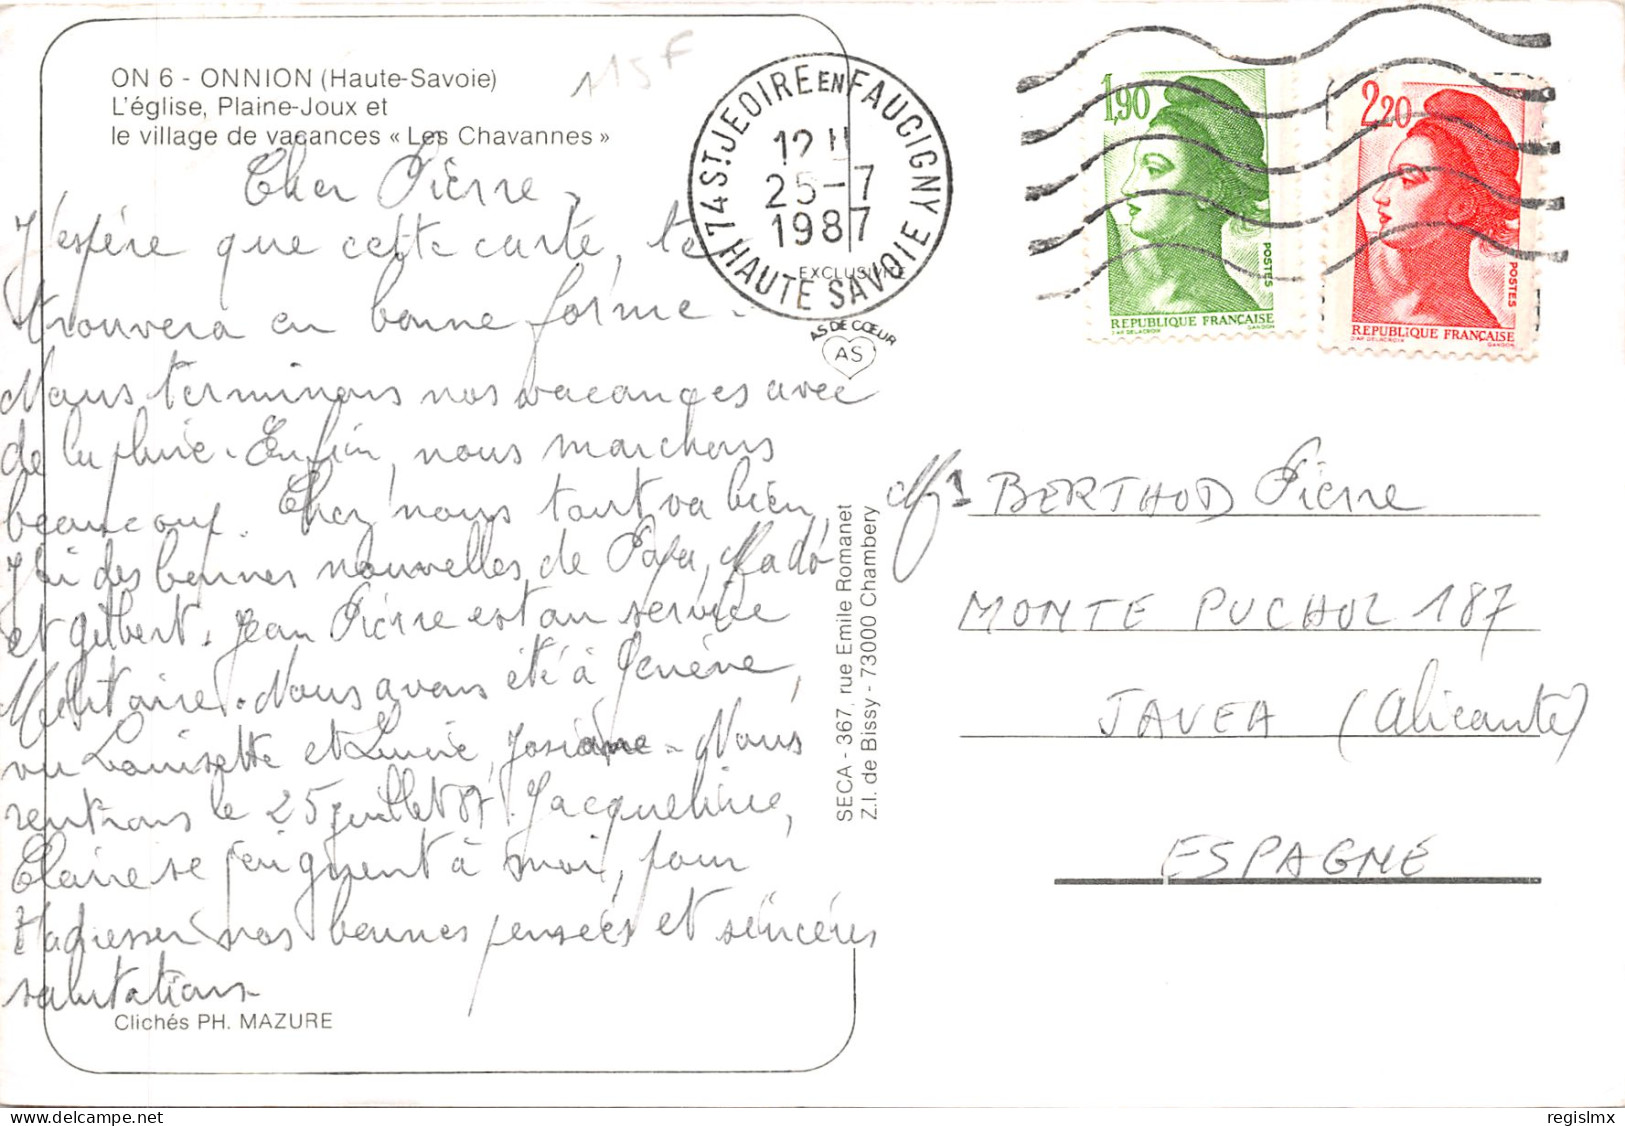 ON 6 - ONNION (Haute-Savoie)
L'église, Plaine-Joux et
le village de vacances « Les Chavannes »
115F
Cher Pierre,
J'espère que cette carte, te
trouvera en bonne forme.
Nous terminons nos vacances avec
de la pluie. Enfin, nous marchons
beaucoup. Chez nous tout va bien,
J'ai des bonnes nouvelles de Papa, Mado
et Gilbert. Jean Pierre est au service
Militaire. Nous avons été à Genève,
vu Louisette et Lucie, Josiane. Nous
rentrons le 25 juillet 87. Jacqueline,
Claire se joignent à moi, pour
t'adresser nos bonnes pensées et sincères
salutations
Clichés PH. MAZURE
74 ST JEOIRE EN FAUCIGNY
12 H
25-7
1987
HAUTE SAVOIE
EXCLUSIVITE
AS DE CŒUR
AS
SECA - 367, rue Emile Romanet
Z.I. de Bissy - 73000 Chambery
1,90
POSTES
REPUBLIQUE FRANÇAISE
D'AP. DELACROIX GANDON
2,20
POSTES
REPUBLIQUE FRANÇAISE
D'AP. DELACROIX GANDON
Mr BERTHOD Pierre
MONTE PUCHOL 187
JAVEA (Alicante)
ESPAGNE
regislmx
delcampe.net